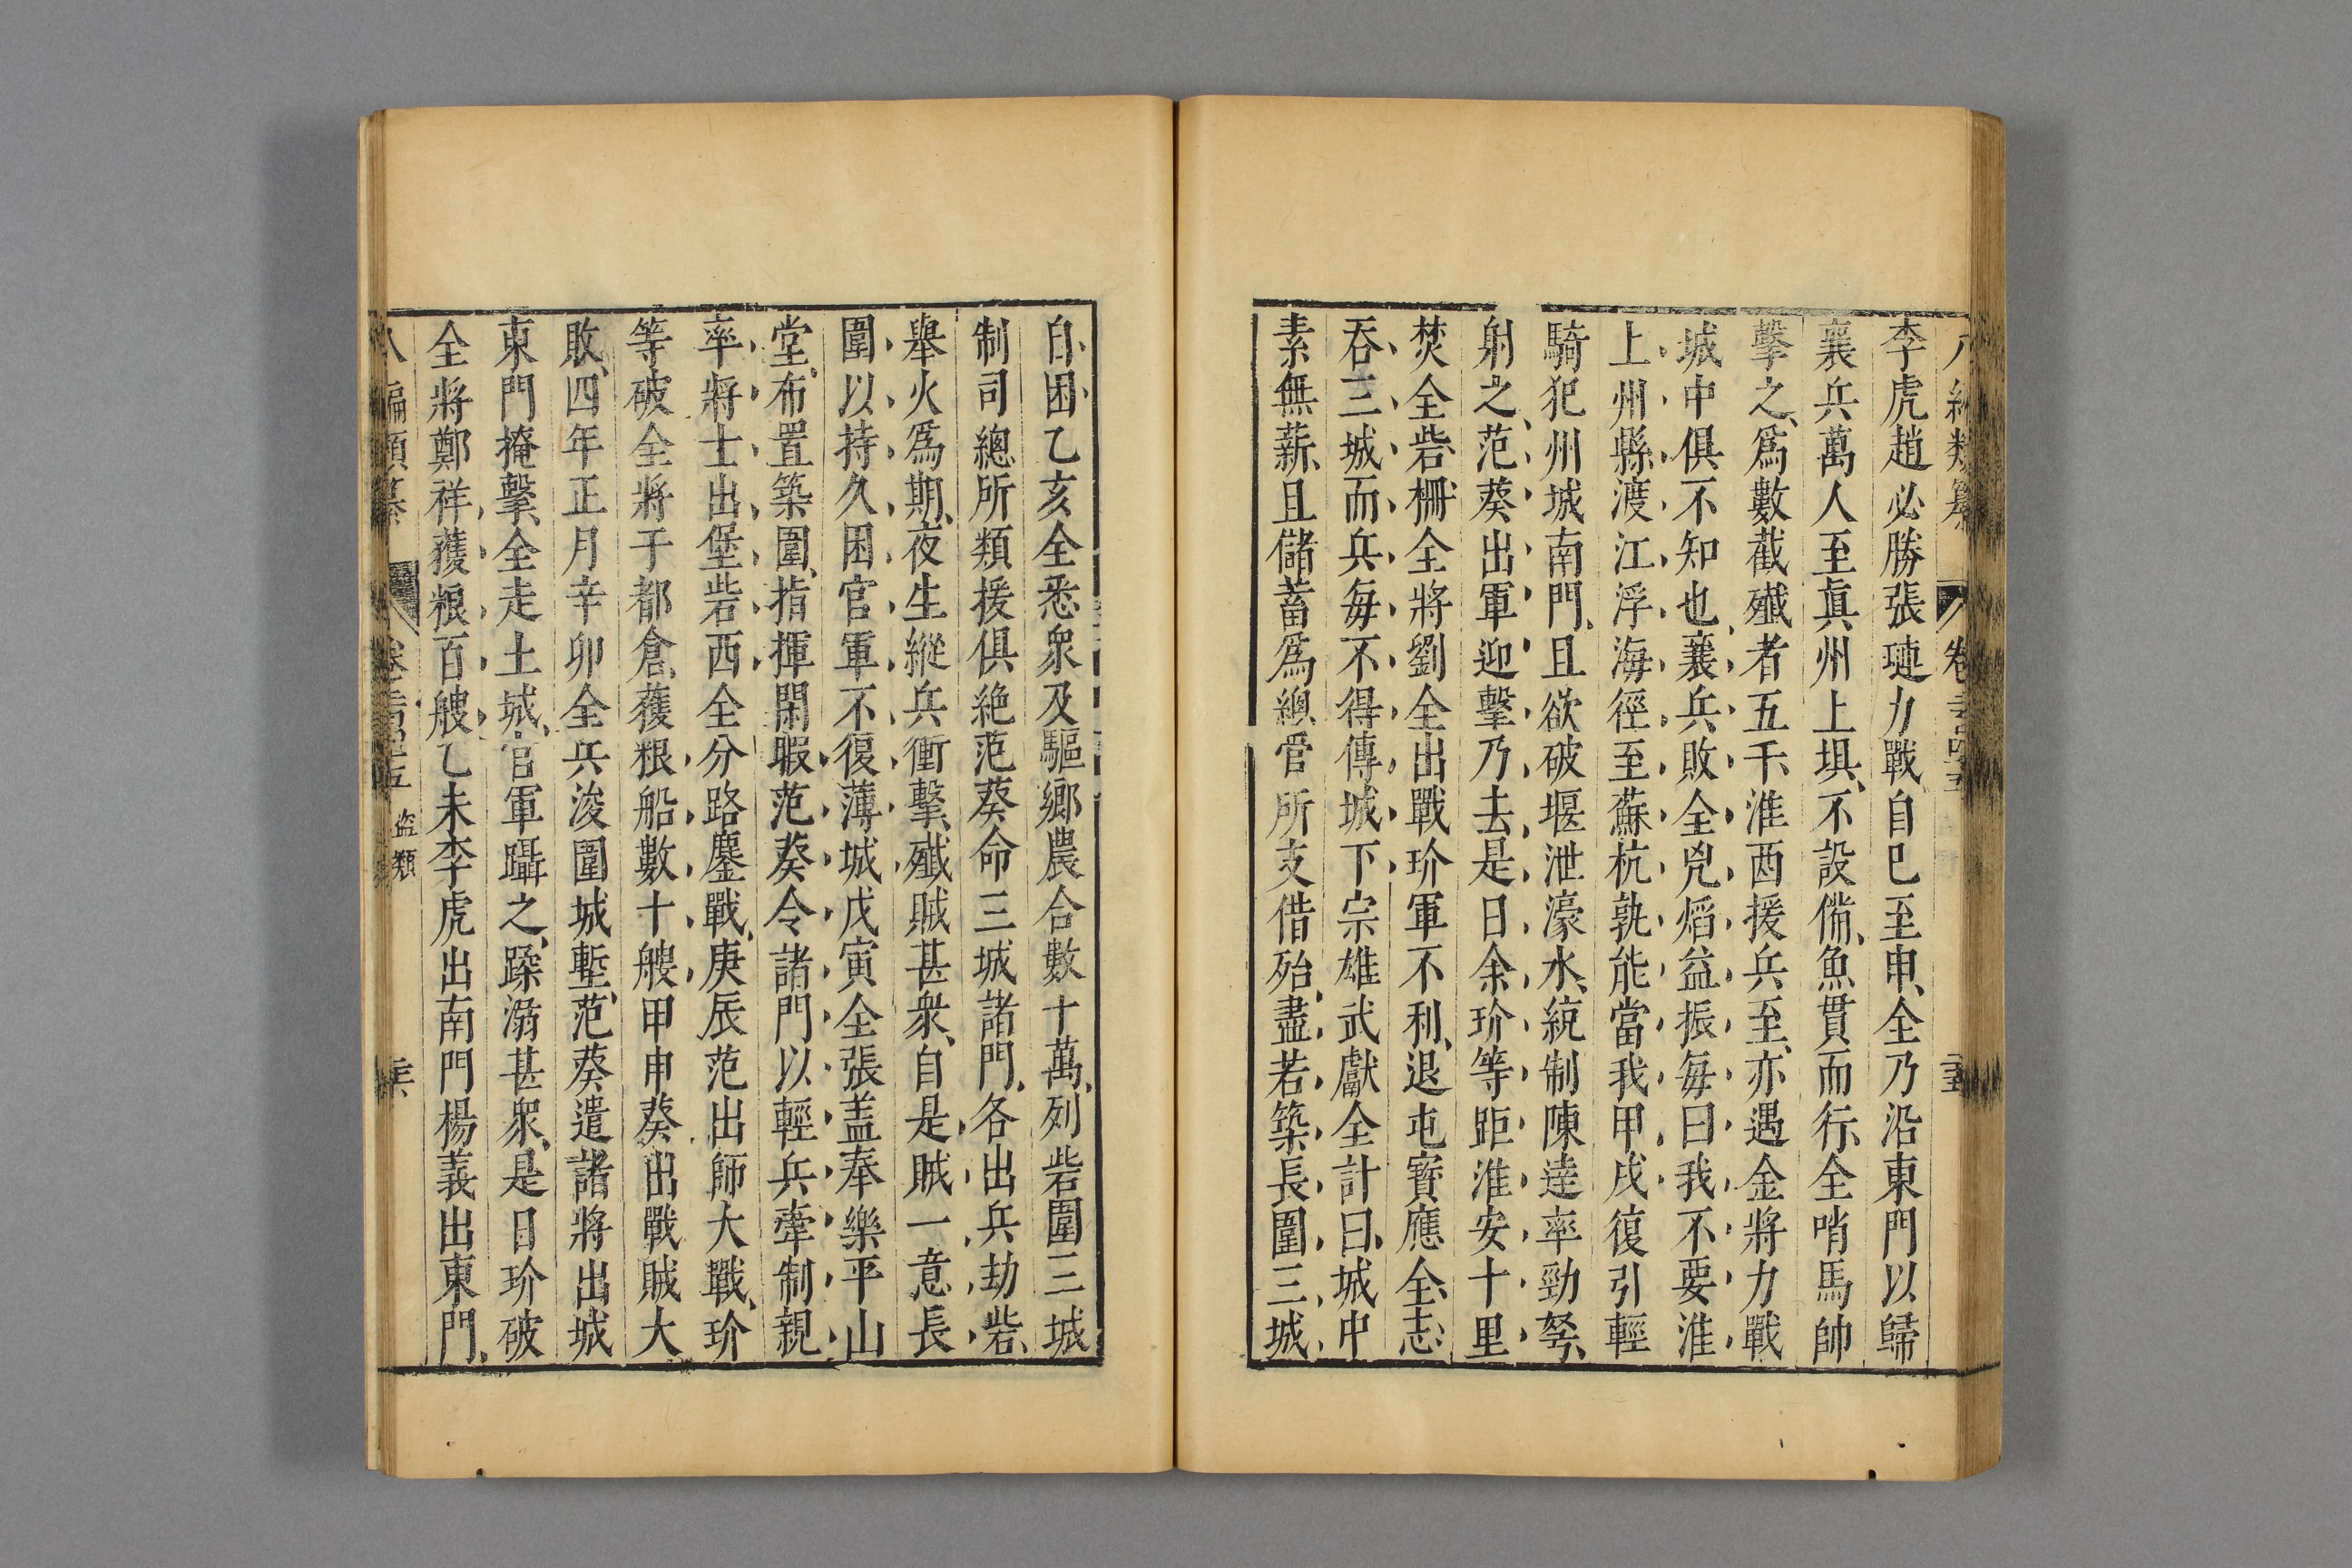 李虎趙必勝張璉力戰自巳至申全乃沿東門以歸
襄兵萬人至眞州上埧不設備魚貫而行全哨馬帥
擊之爲數截殲者五千淮西援兵至亦遇金將力戰
城中俱不知也襄兵敗全兇焰益振每曰我不要淮
上州縣渡江浮海徑至蘇杭孰能當我甲戌復引輕
騎犯州城南門且欲破堰泄濠水統制陳達率勁弩
射之范葵出軍迎擊乃去是日余玠等距淮安十里
焚全砦柵全將劉全出戰玠軍不利退屯寳應全志
吞三城而兵每不得傅城下宗雄武獻全計曰城中
素無薪且儲蓄爲總管所支借殆盡若築長圍三城
自困乙亥全悉衆及驅鄉農合數十萬列砦圍三城
制司總所類援俱絶范葵命三城諸門各出兵劫砦
舉火爲期夜生縱兵衝擊殲賊甚衆自是賊一意長
圍以持久困官軍不復薄城戊寅全張盖奉樂平山
堂布置築圍指揮閑暇范葵令諸門以輕兵牽制親
率將士出堡砦西全分路鏖戰庚辰范出師大戰玠
等破全將于都倉獲粮船數十艘甲申葵出戰賊大
敗四年正月辛卯全兵浚圍城塹范葵遣諸將出城
東門掩擊全走土城官軍躡之蹂溺甚衆是日玠破
全將鄭祥獲粮百艘乙未李虎出南門楊義出東門
八編類纂 卷 盗類